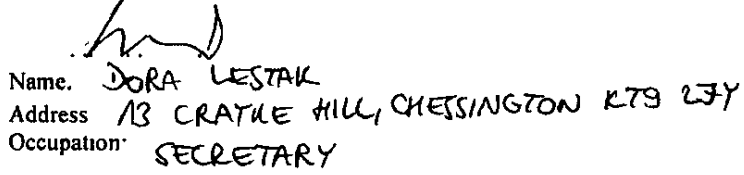 Name. DORA LESTAK
Address 13 CRAYKE HILL, CHESSINGTON KT9 2FY
Occupation: SECRETARY